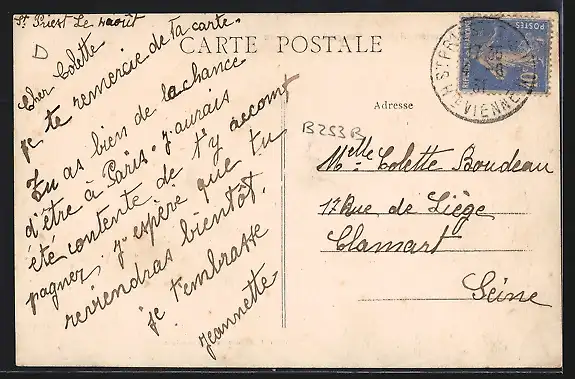 St Priest Le août
D
CARTE POSTALE
Cher Colette
je te remercie de ta carte.
Tu as bien de la chance
d'être à Paris. J'aurais
été contente de t'y accom
pagnez. J'espère que tu
reviendras bientôt.
je t'embrasse
Jeannette
Adresse
B253B
Melle Colette Boudeau
17 Rue de Liège
Clamart
Seine
POSTES
40c
Hte VIENNE